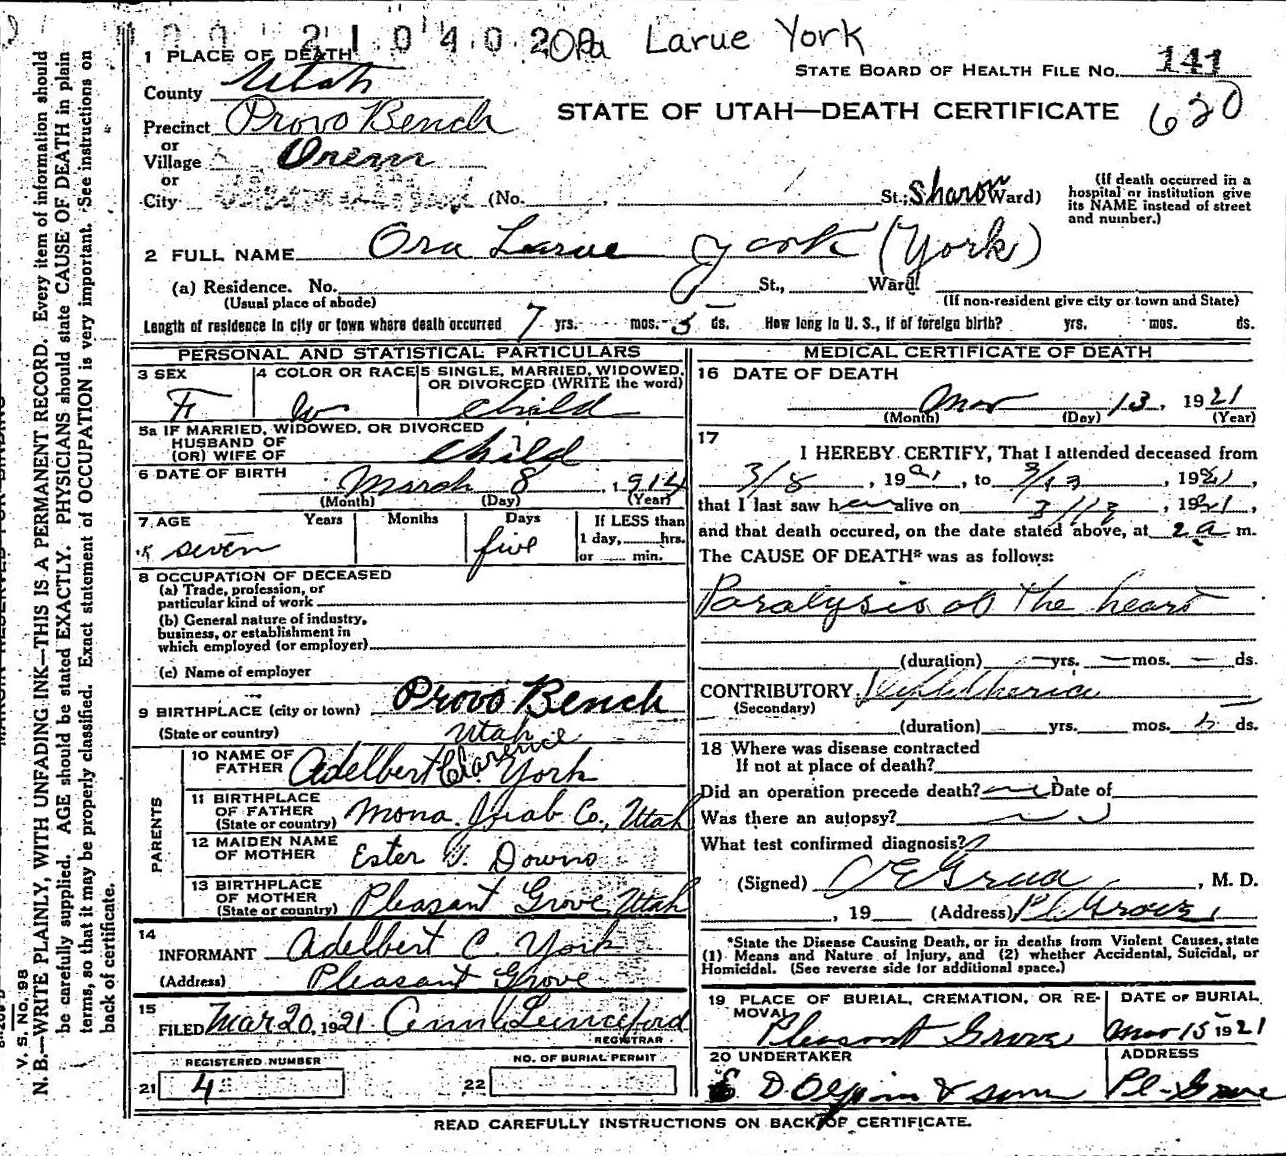 2 1 0 4 0 2 Opa Larue York
1 PLACE OF DEATH
STATE BOARD OF HEALTH FILE NO. 141
County Utah
STATE OF UTAH—DEATH CERTIFICATE 620
Precinct Provo Bench
or
Village Orem
or
City (No. , St.; Sharon Ward)
(If death occurred in a hospital or institution give its NAME instead of street and number.)
2 FULL NAME Ora Larue York (York)
(a) Residence. No. St., Ward.
(Usual place of abode) (If non-resident give city or town and State)
Length of residence in city or town where death occurred 7 yrs. mos. 5 ds. How long in U. S., if of foreign birth? yrs. mos. ds.
PERSONAL AND STATISTICAL PARTICULARS
3 SEX 4 COLOR OR RACE 5 SINGLE, MARRIED, WIDOWED, OR DIVORCED (WRITE the word)
F W Child
5a IF MARRIED, WIDOWED, OR DIVORCED
HUSBAND OF
(OR) WIFE OF Child
6 DATE OF BIRTH March 8, 1914
(Month) (Day) (Year)
7 AGE Years Months Days If LESS than
seven five 1 day, hrs.
or min.
8 OCCUPATION OF DECEASED
(a) Trade, profession, or
particular kind of work
(b) General nature of industry,
business, or establishment in
which employed (or employer)
(c) Name of employer
9 BIRTHPLACE (city or town) Provo Bench
(State or country) Utah
PARENTS
10 NAME OF FATHER Adelbert Clarence York
11 BIRTHPLACE OF FATHER (State or country) Mona. Juab Co., Utah
12 MAIDEN NAME OF MOTHER Ester Downs
13 BIRTHPLACE OF MOTHER (State or country) Pleasant Grove, Utah
14
INFORMANT Adelbert C. York
(Address) Pleasant Grove
15
FILED Mar 20, 1921 Lunceford
REGISTRAR
REGISTERED NUMBER NO. OF BURIAL PERMIT
21 4 22
MEDICAL CERTIFICATE OF DEATH
16 DATE OF DEATH
Mar 13, 1921
(Month) (Day) (Year)
17
I HEREBY CERTIFY, That I attended deceased from
3/8, 1921, to 3/13, 1921,
that I last saw her alive on 3/13, 1921,
and that death occured, on the date stated above, at 2 a m.
The CAUSE OF DEATH* was as follows:
Paralysis of the heart
(duration) — yrs. — mos. — ds.
CONTRIBUTORY Diphtheria
(Secondary)
(duration) yrs. mos. 5 ds.
18 Where was disease contracted
If not at place of death?
Did an operation precede death? Date of
Was there an autopsy?
What test confirmed diagnosis?
(Signed) , M. D.
, 19 (Address) Pl. Grove,
*State the Disease Causing Death, or in deaths from Violent Causes, state
(1) Means and Nature of Injury, and (2) whether Accidental, Suicidal, or
Homicidal. (See reverse side for additional space.)
19 PLACE OF BURIAL, CREMATION, OR REMOVAL DATE OF BURIAL
Pleasant Grove Mar 15 1921
20 UNDERTAKER ADDRESS
D Olpin & sons Pl-Grove
READ CAREFULLY INSTRUCTIONS ON BACK OF CERTIFICATE.
V. S. No. 98
N. B.—WRITE PLAINLY, WITH UNFADING INK—THIS IS A PERMANENT RECORD. Every item of information should
be carefully supplied. AGE should be stated EXACTLY. PHYSICIANS should state CAUSE OF DEATH in plain
terms, so that it may be properly classified. Exact statement of OCCUPATION is very important. See instructions on
back of certificate.